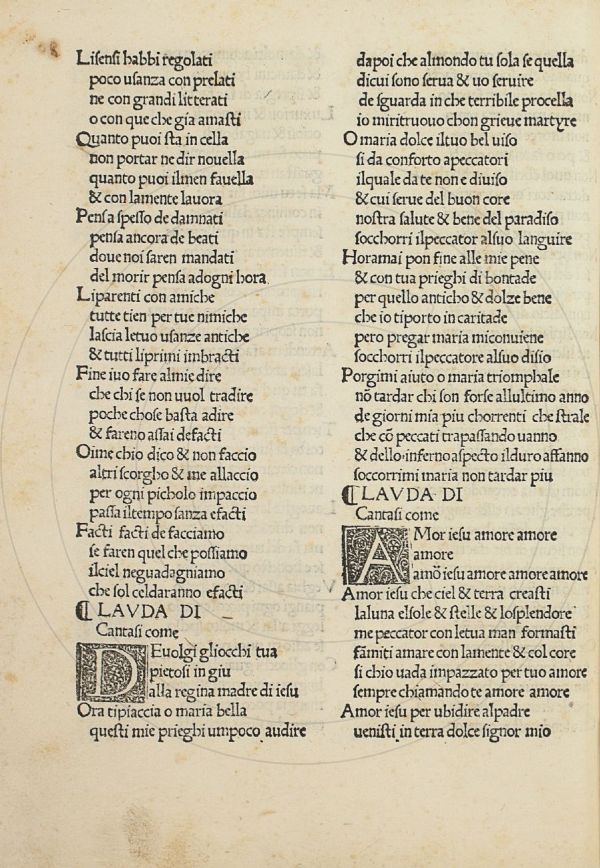 Liſenſi habbi regolati
poco uſanza con prelati
ne con grandi litterati
o con que che gia amaſti
Quanto puoi ſta in cella
non portar ne dir nouella
quanto puoi ilmen fauella
& con lamente lauora
Penſa ſpeſſo de damnati
penſa ancora de beati
doue noi ſaren mandati
del morir penſa adogni hora
Liparenti con amiche
tutte tien per tue nimiche
laſcia letuo uſanze antiche
& tutti liprimi imbracti
Fine iuo fare almie dire
che chi ſe non uuol tradire
poche choſe baſta adire
& fareno aſſai defacti
Oime chio dico & non faccio
altri ſcorgho & me allaccio
per ogni picholo impaccio
paſſa iltempo ſanza efacti
Facti facti de facciamo
ſe faren quel che poſſiamo
ilciel neguadagniamo
che ſol celdaranno efacti
⁋ LAVDA DI
Cantaſi come
DEuolgi gliocchi tua
pietoſi in giu
alla regina madre di ieſu
Ora tipiaccia o maria bella
queſti mie prieghi umpoco audire
dapoi che almondo tu ſola ſe quella
dicui ſono ſerua & uo ſeruire
de ſguarda in che terribile procella
io miritruouo chon grieue martyre
O maria dolce iltuo bel uiſo
ſi da conforto apeccatori
ilquale da te non e diuiſo
& cui ſerue del buon core
noſtra ſalute & bene del paradiſo
ſocchorri ilpeccator alſuo languire
Horamai pon fine alle mie pene
& con tua prieghi di bontade
per quello anticho & dolze bene
che io tiporto in caritade
pero pregar maria miconuiene
ſocchorri ilpeccatore alſuo diſio
Porgimi aiuto o maria triomphale
nõ tardar chi ſon forſe allultimo anno
de giorni mia piu chorrenti che ſtrale
che cõ peccati trapaſſando uanno
& dello inferno aſpecto ilduro affanno
ſoccorrimi maria non tardar piu
⁋ LAVDA DI
Cantaſi come
AMor ieſu amore amore
amore
amõ ieſu amore amore amore
Amor ieſu che ciel & terra creaſti
laluna elſole & ſtelle & loſplendore
me peccator con letua man formaſti
fãmiti amare con lamente & col core
ſi chio uada impazzato per tuo amore
ſempre chiamando te amore amore
Amor ieſu per ubidire alpadre
ueniſti in terra dolce ſignor mio